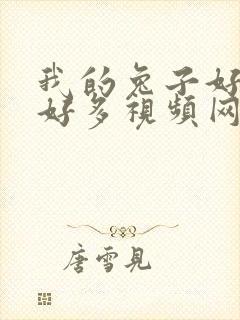 我的兔子好
好多視頻网
唐雪見